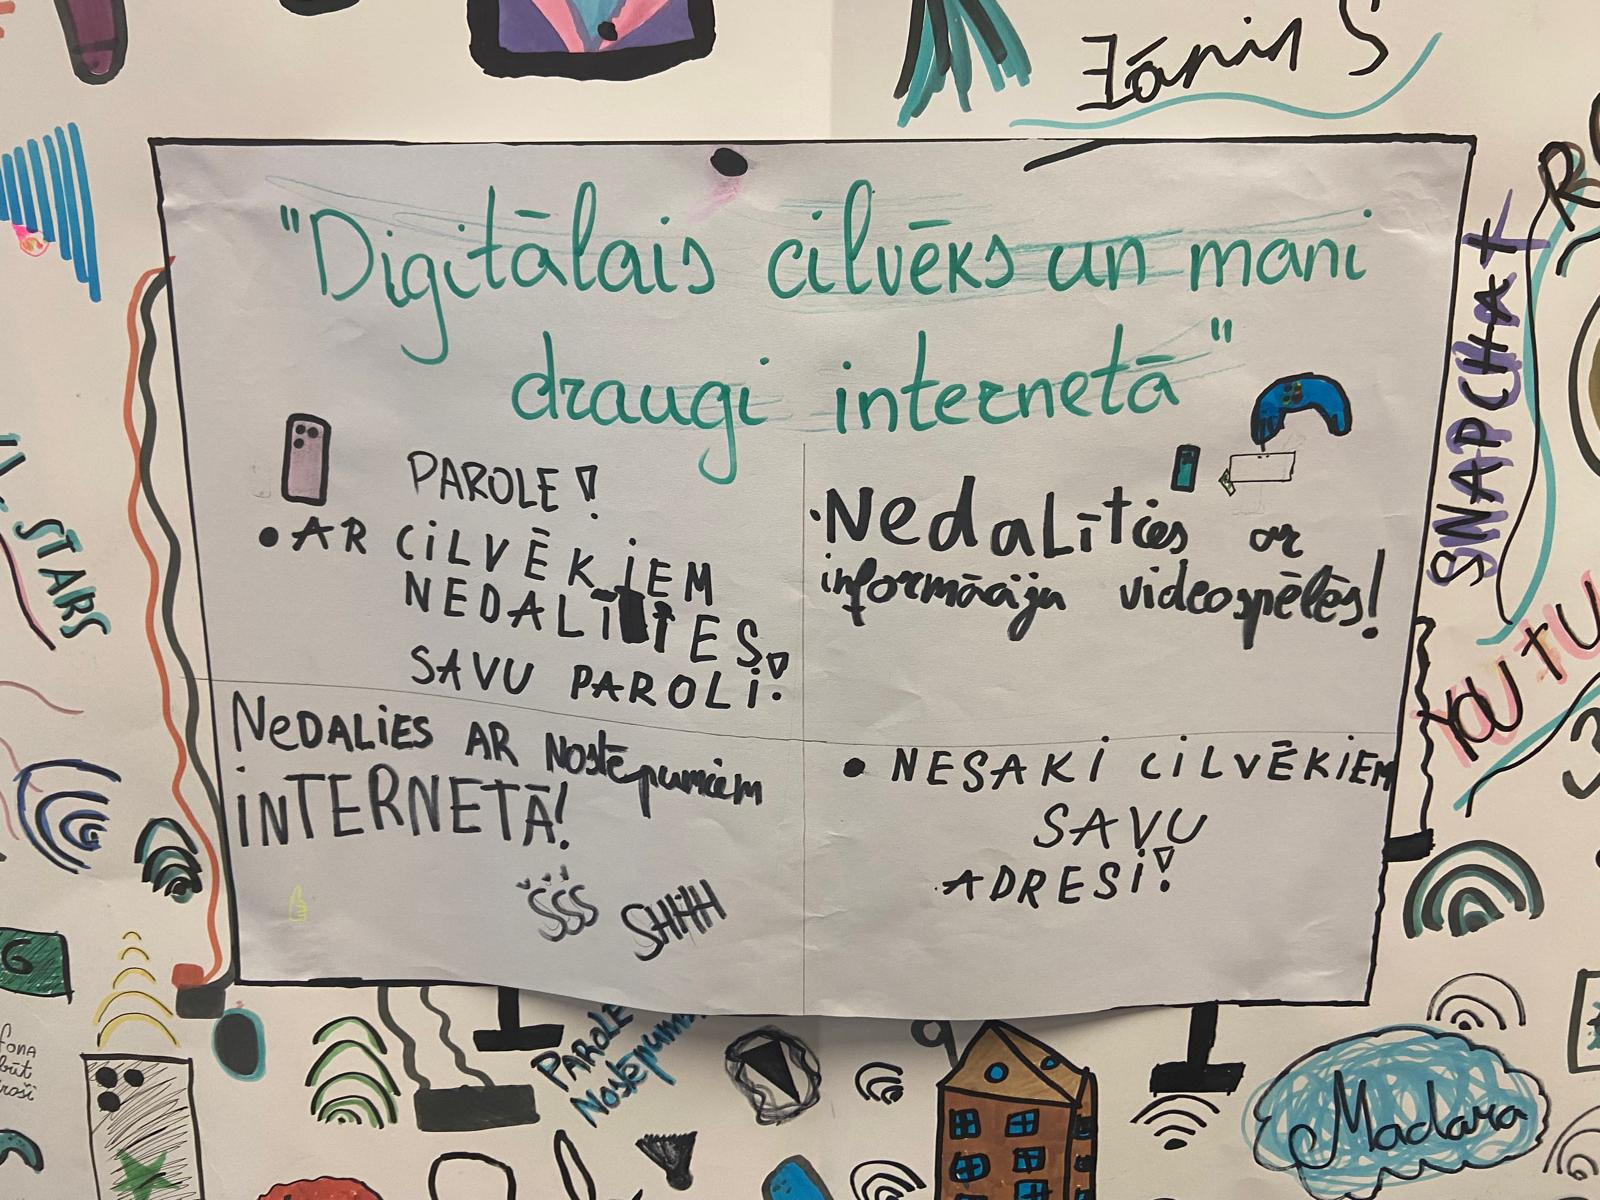 Jānis S
"Digitālais cilvēks un mani
draugi internetā"
PAROLE!
• AR CILVĒKIEM
NEDALĪTIES
SAVU PAROLI!
• Nedalīties ar
informāciju videospēlēs!
NeDALIES AR Nostēpumiem
INTERNETĀ!
ŠŠŠ SHHH
• NESAKI CILVĒKIEM
SAVU
ADRESI!
SNAPCHAT
YOUTU
STARS
G
fona
būt
PAROLE
Nostēpuma
Madara